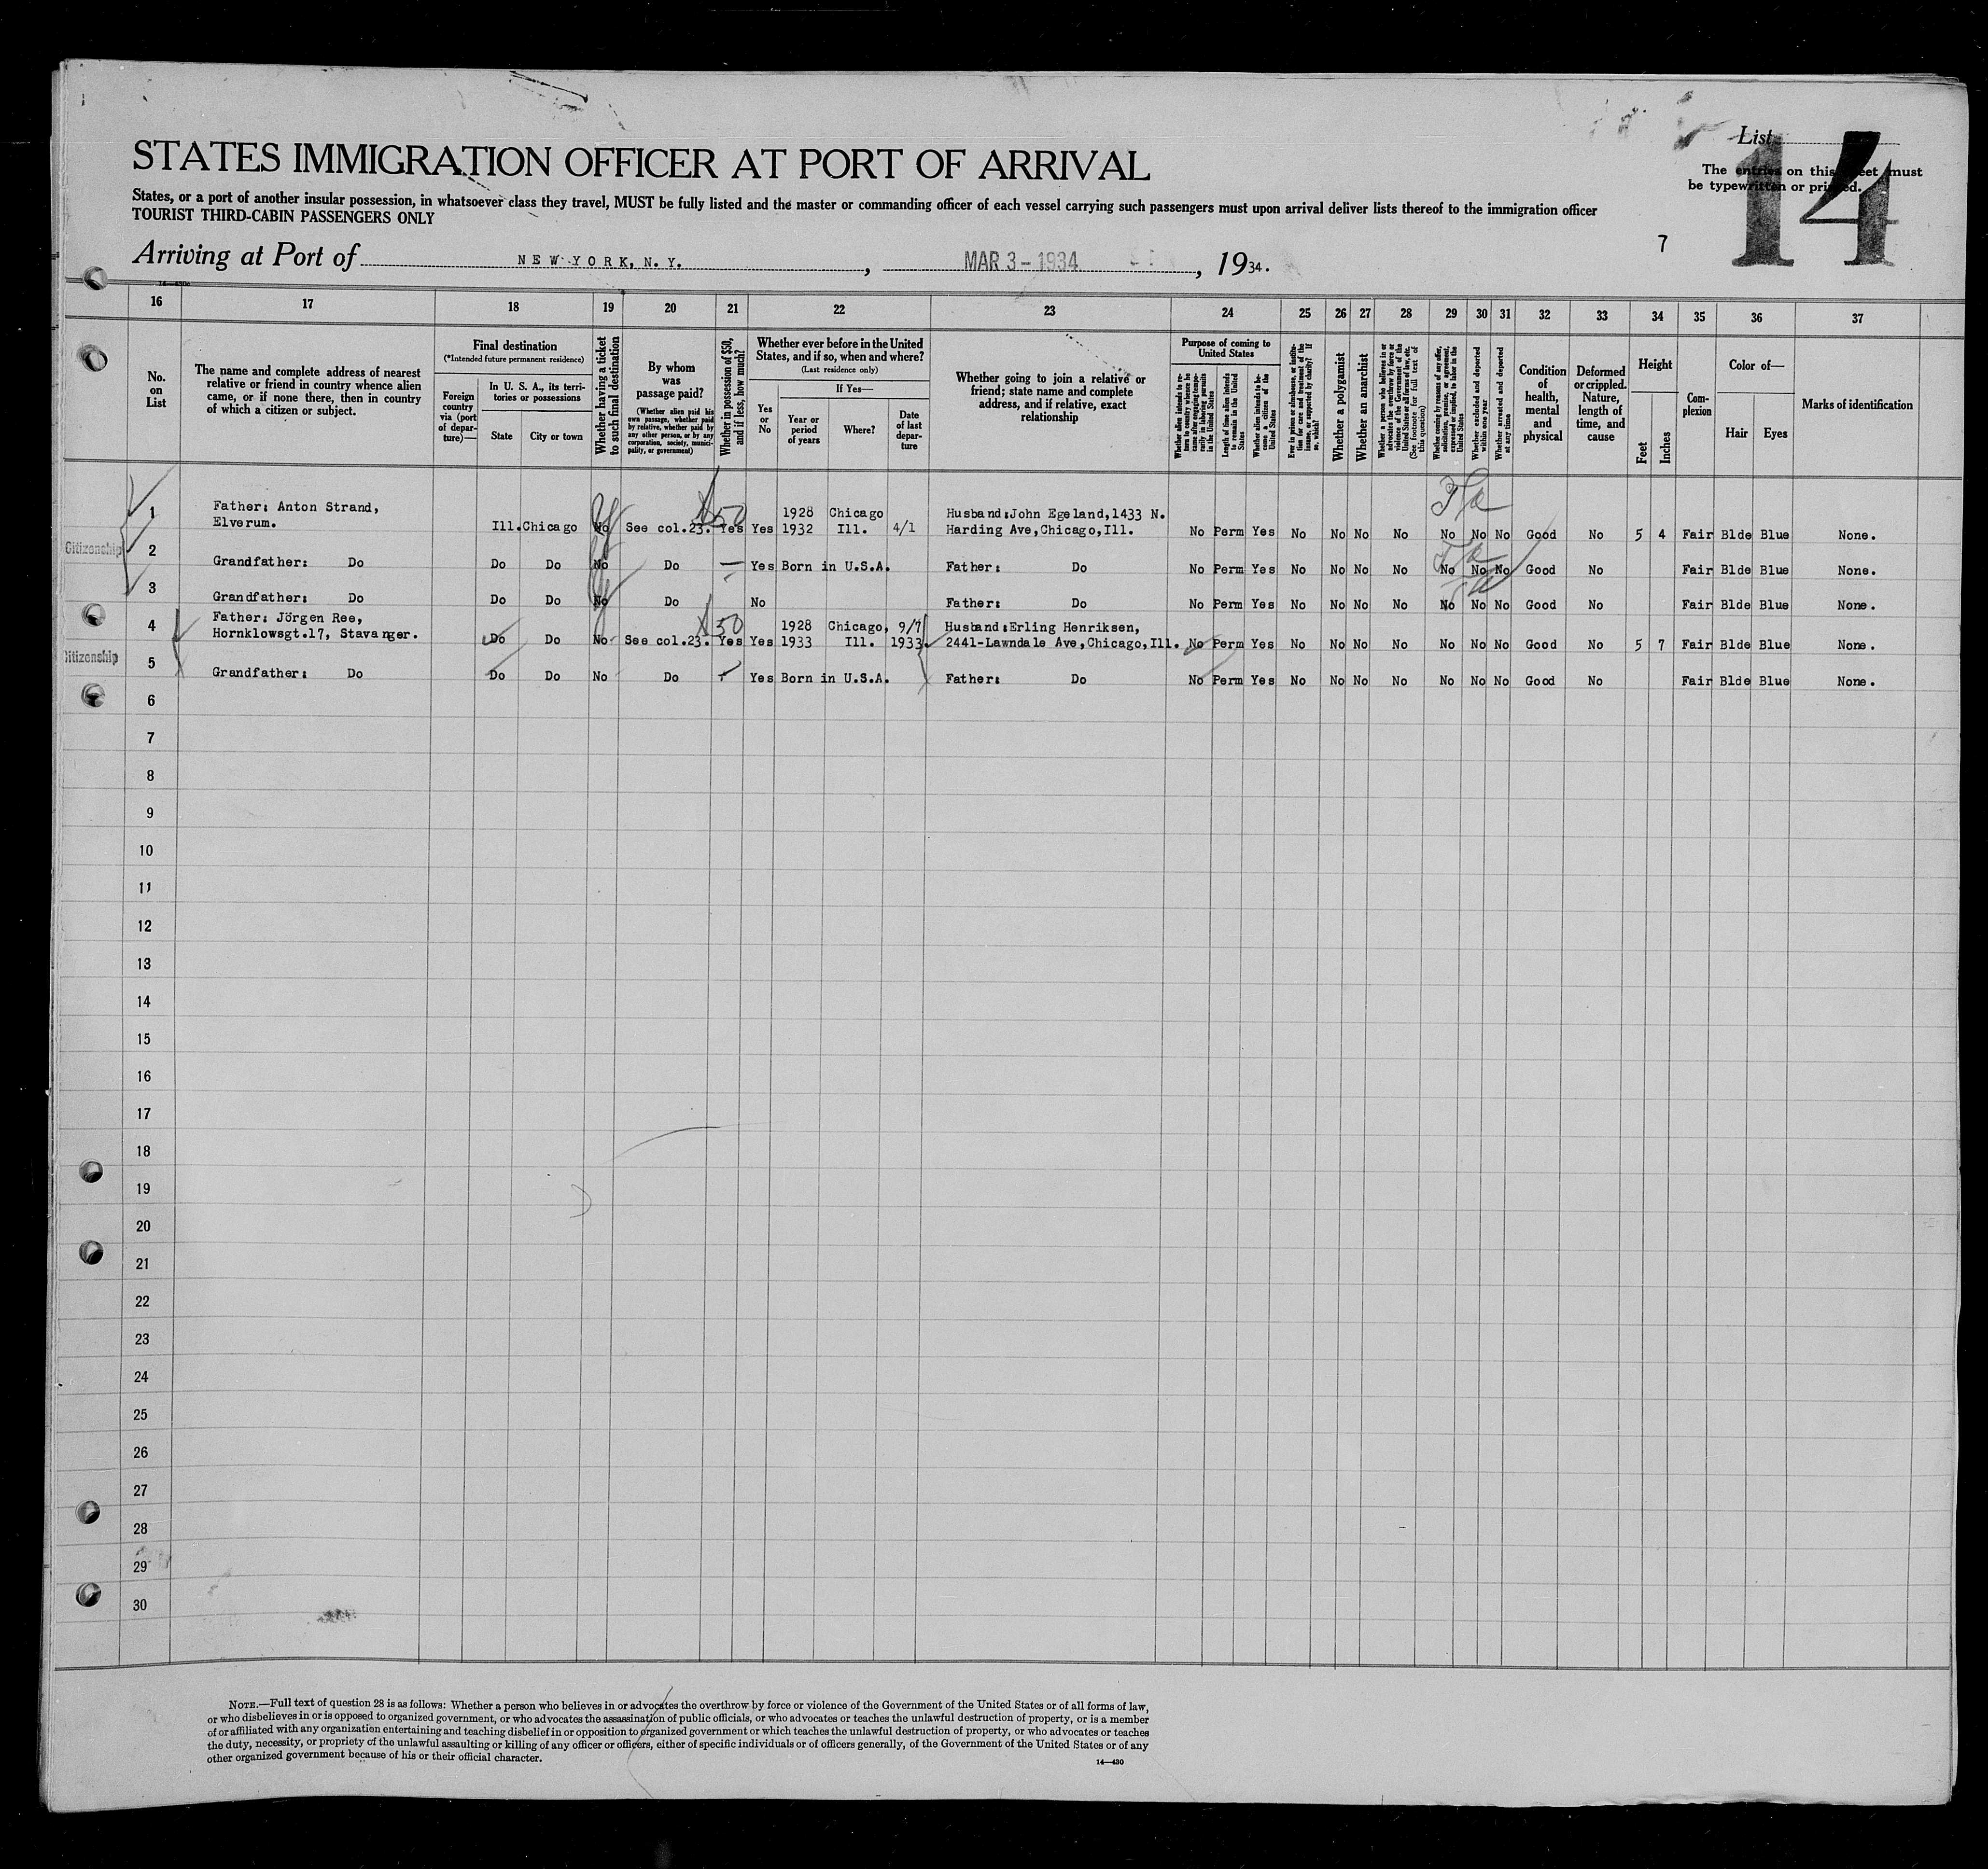 List
14
STATES IMMIGRATION OFFICER AT PORT OF ARRIVAL
The entries on this sheet must
be typewritten or printed.
States, or a port of another insular possession, in whatsoever class they travel, MUST be fully listed and the master or commanding officer of each vessel carrying such passengers must upon arrival deliver lists thereof to the immigration officer
TOURIST THIRD-CABIN PASSENGERS ONLY
7
Arriving at Port of NEW YORK, N. Y., MAR 3 - 1934, 1934.
16 17 18 19 20 21 22 23 24 25 26 27 28 29 30 31 32 33 34 35 36 37
No. on List
The name and complete address of nearest
relative or friend in country whence alien
came, or if none there, then in country
of which a citizen or subject.
Final destination
(*Intended future permanent residence)
Foreign country via (port of departure)—
In U. S. A., its territories or possessions
State
City or town
Whether having a ticket to such final destination
By whom was passage paid?
(Whether alien paid his own passage, whether paid by relative, whether paid by any other person, or by any corporation, society, municipality, or government)
Whether in possession of $50, and if less, how much?
Whether ever before in the United States, and if so, when and where?
(Last residence only)
Yes or No
If Yes—
Year or period of years
Where?
Date of last departure
Whether going to join a relative or
friend; state name and complete
address, and if relative, exact
relationship
Purpose of coming to United States
Whether alien intends to return to country whence he came after engaging temporarily in laboring pursuits in the United States
Length of time alien intends to remain in the United States
Whether alien intends to become a citizen of the United States
Ever in prison or almshouse, or institution for care and treatment of the insane, or supported by charity? If so, which?
Whether a polygamist
Whether an anarchist
Whether a person who believes in or advocates the overthrow by force or violence of the Government of the United States or all forms of law, etc. (See footnote for full text of this question)
Whether coming by reasons of any offer, solicitation, promise, or agreement, expressed or implied, to labor in the United States
Whether excluded and deported within one year
Whether arrested and deported at any time
Condition of health, mental and physical
Deformed or crippled. Nature, length of time, and cause
Height
Feet
Inches
Complexion
Color of—
Hair
Eyes
Marks of identification
1 Father: Anton Strand,
Elverum. Ill. Chicago No See col.23. $50 Yes Yes 1928 1932 Chicago Ill. 4/1 Husband:John Egeland,1433 N.
Harding Ave,Chicago,Ill. No Perm Yes No No No No No No No Good No 5 4 Fair Blde Blue None.
Citizenship
2 Grandfather: Do Do Do No Do — Yes Born in U.S.A. Father: Do No Perm Yes No No No No No No No Good No Fair Blde Blue None.
3 Grandfather: Do Do Do No Do No Father: Do No Perm Yes No No No No No No No Good No Fair Blde Blue None.
4 Father: Jörgen Ree,
Hornklowsgt.17, Stavanger. Do Do No See col.23. $50 Yes Yes 1928 1933 Chicago, Ill. 9/7 1933 Husband:Erling Henriksen,
2441-Lawndale Ave,Chicago,Ill. No Perm Yes No No No No No No No Good No 5 7 Fair Blde Blue None.
Citizenship
5 Grandfather: Do Do Do No Do Yes Born in U.S.A. Father: Do No Perm Yes No No No No No No No Good No Fair Blde Blue None.
6
7
8
9
10
11
12
13
14
15
16
17
18
19
20
21
22
23
24
25
26
27
28
29
30
NOTE.—Full text of question 28 is as follows: Whether a person who believes in or advocates the overthrow by force or violence of the Government of the United States or of all forms of law,
or who disbelieves in or is opposed to organized government, or who advocates the assassination of public officials, or who advocates or teaches the unlawful destruction of property, or is a member
of or affiliated with any organization entertaining and teaching disbelief in or opposition to organized government or which teaches the unlawful destruction of property, or who advocates or teaches
the duty, necessity, or propriety of the unlawful assaulting or killing of any officer or officers, either of specific individuals or of officers generally, of the Government of the United States or of any
other organized government because of his or their official character.
14—430